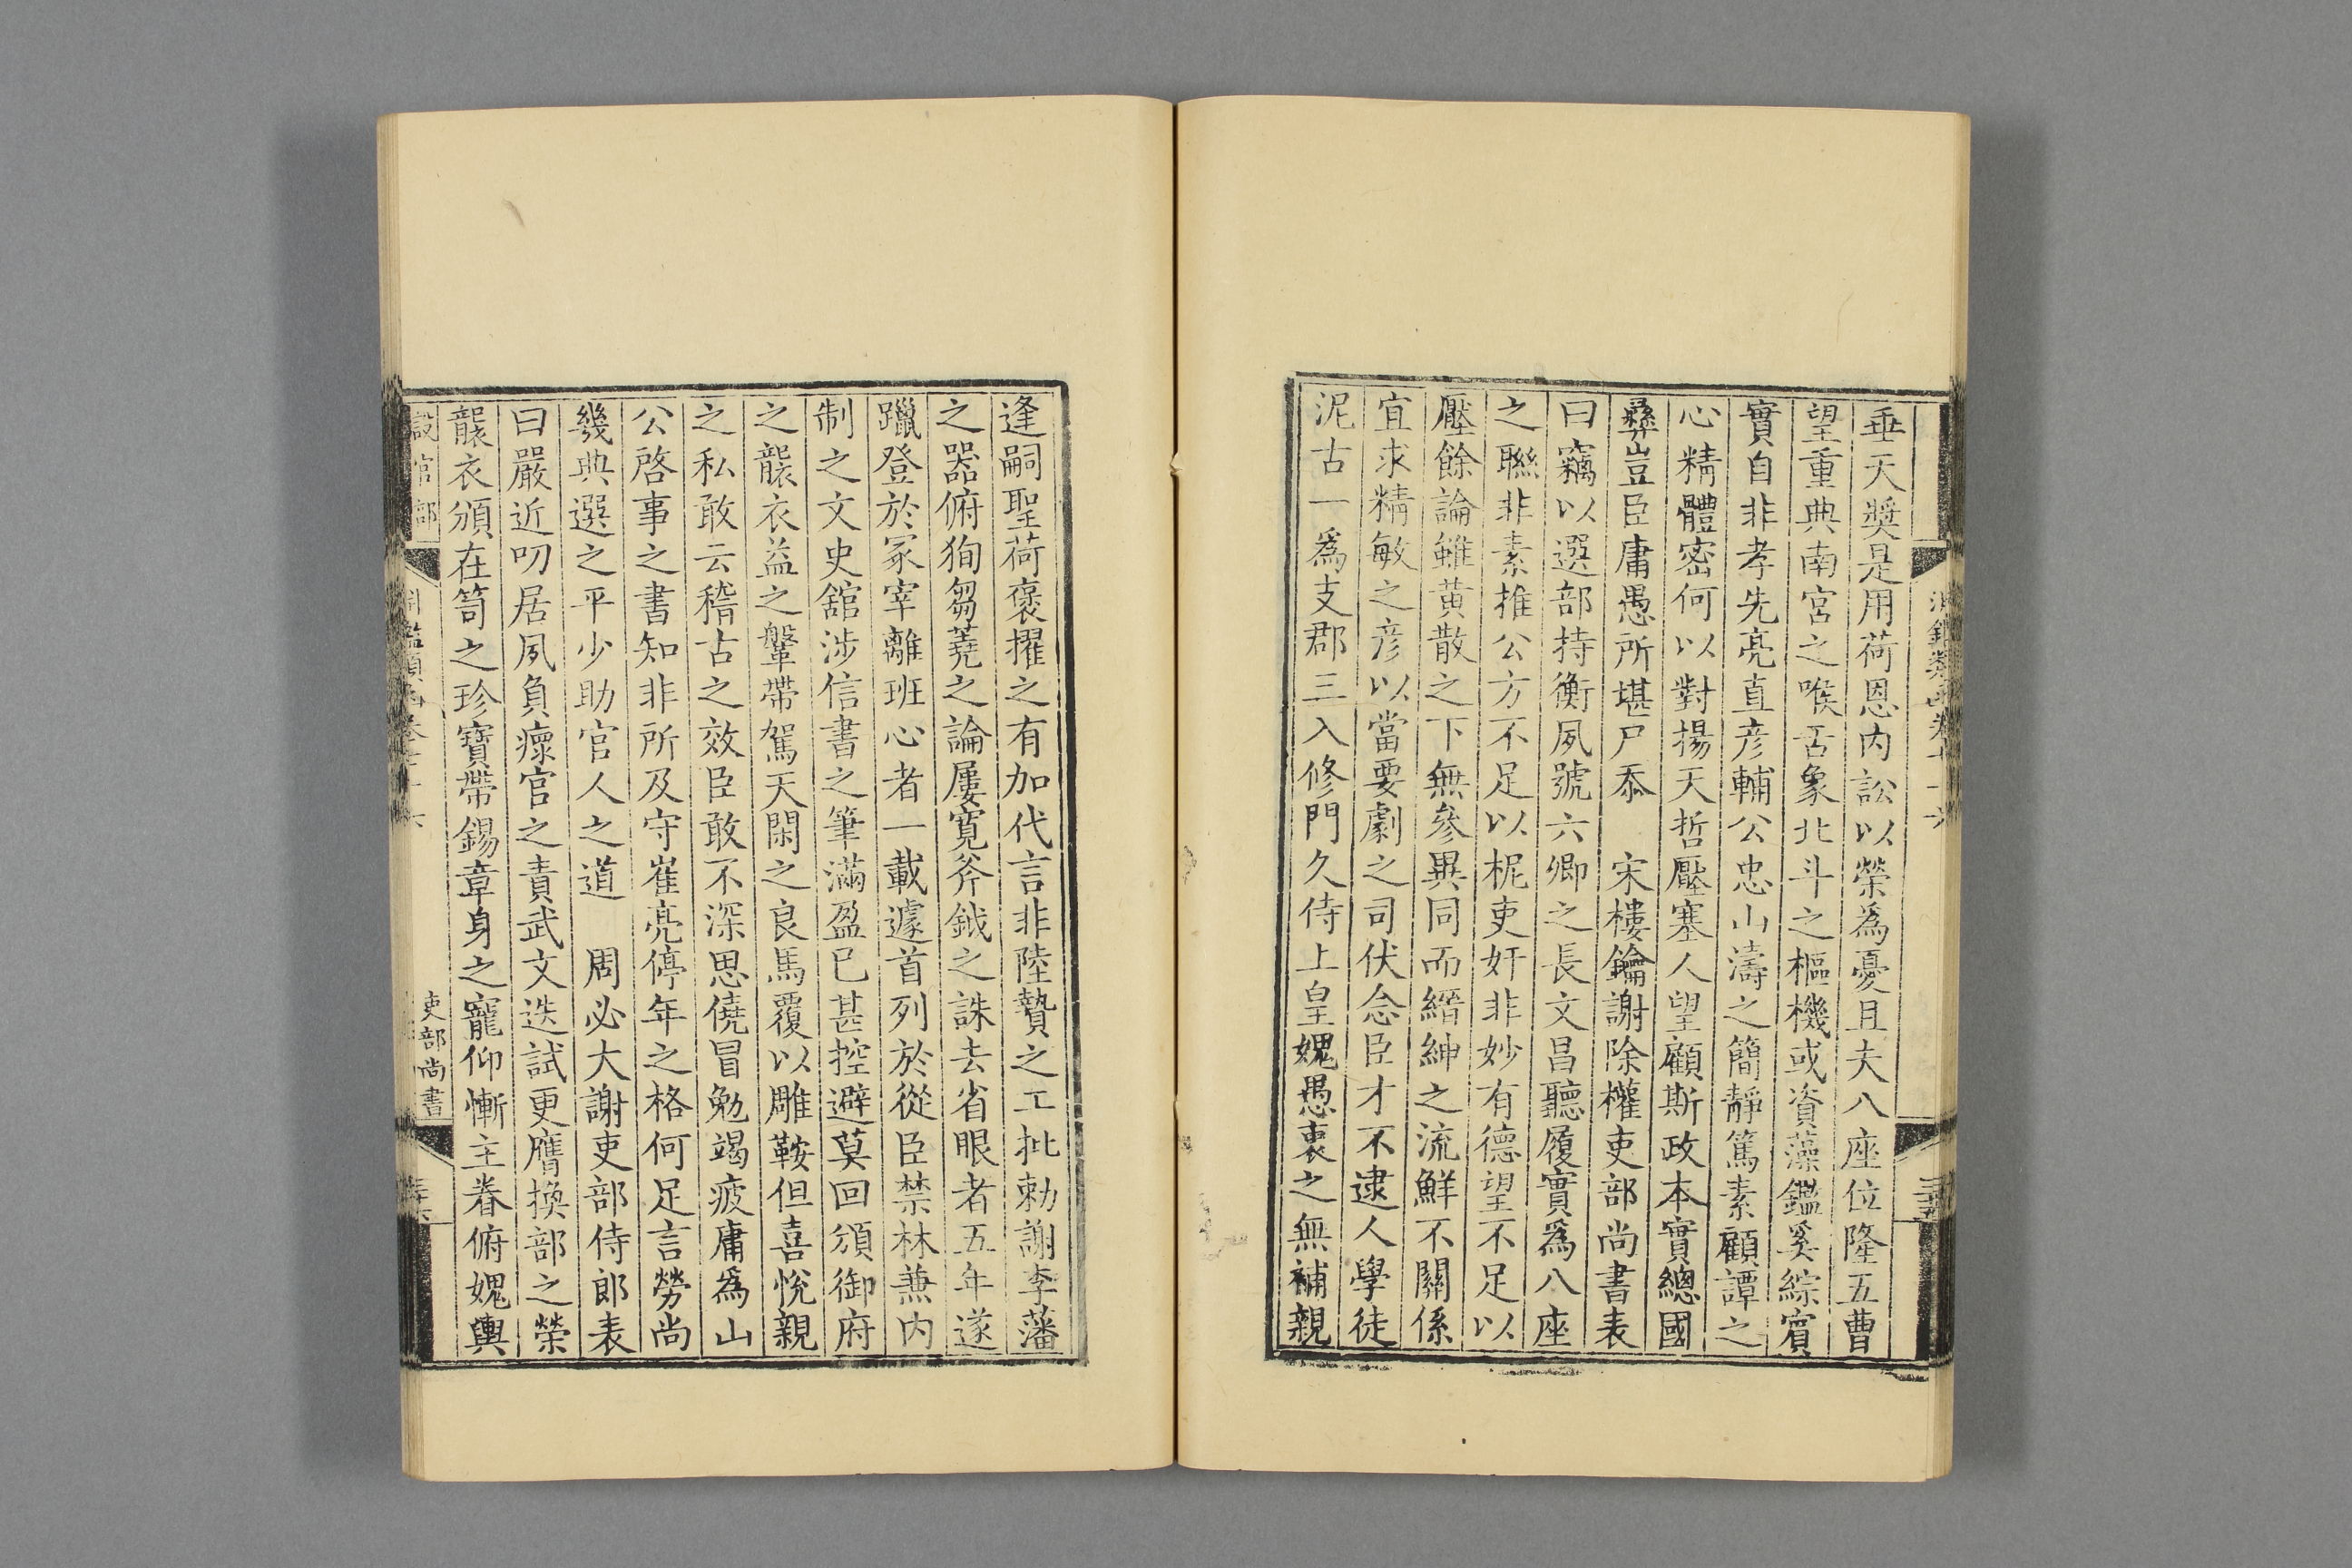 垂天奬是用荷恩内訟以榮爲憂且夫八座位隆五曹
望重典南宮之喉舌象北斗之樞機或資藻鑑奚綜賔
實自非孝先亮直彦輔公忠山濤之簡靜篤素顧譚之
心精體密何以對揚天哲壓塞人望顧斯政本實總國
彝豈臣庸愚所堪尸忝　宋樓鑰謝除權吏部尚書表
曰竊以選部持衡夙號六卿之長文昌聽履實爲八座
之聯非素推公方不足以柅吏奸非妙有德望不足以
壓餘論雖黄散之下無參異同而縉紳之流鮮不關係
宜求精敏之彦以當要劇之司伏念臣才不逮人學徒
泥古一爲支郡三入修門久侍上皇媿愚衷之無補親
逢嗣聖荷褒擢之有加代言非陸贄之工批勅謝李藩
之器俯狥芻蕘之論屢寬斧鉞之誅去省眼者五年遂
躐登於冢宰離班心者一載遽首列於從臣禁林兼内
制之文史舘涉信書之筆滿盈已甚控避莫回頒御府
之襲衣益之鞶帶駕天閑之良馬覆以雕鞍但喜悅親
之私敢云稽古之效臣敢不深思僥冒勉竭疲庸爲山
公啓事之書知非所及守崔亮停年之格何足言勞尚
幾典選之平少助官人之道　周必大謝吏部侍郎表
曰嚴近叨居夙負瘝官之責武文迭試更膺換部之榮
襲衣頒在笥之珍寳帶錫章身之寵仰慚主眷俯媿輿
設官部
吏部尚書